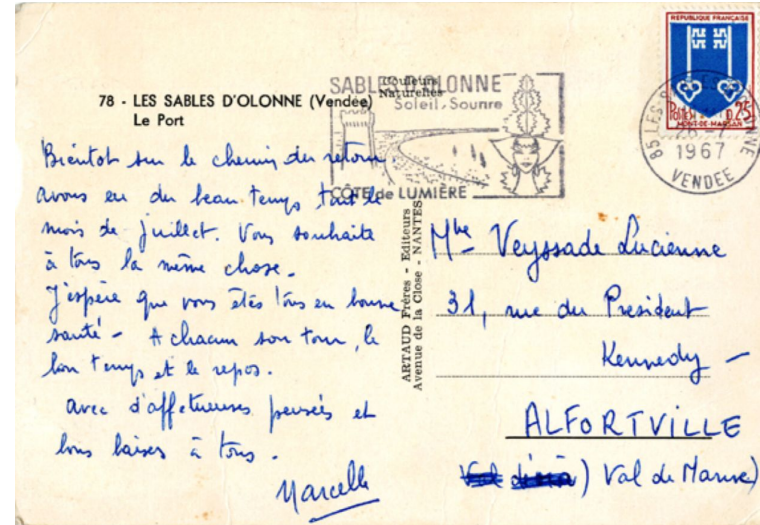 78 - LES SABLES D'OLONNE (Vendée)
Le Port
Couleurs
Naturelles
SABLES D'OLONNE
Soleil, Sourire
CÔTE de LUMIÈRE
REPUBLIQUE FRANÇAISE
POSTES 0,25
MONT-DE-MARSAN
85 LES OLONNE
26-7
1967
VENDEE
Bientot sur le chemin du retour
avons eu du beau temps tout le
mois de juillet. Vous souhaite
à tous la même chose.
J'espère que vous êtes tous en bonne
santé - A chacun son tour, le
bon temps et le repos.
avec d'affetueuses pensées et
bons baisers à tous.
Marcelle
ARTAUD Frères - Editeurs
Avenue de la Close - NANTES
Veyssade Lucienne
31, rue du President
Kennedy -
ALFORTVILLE
) Val de Marne)